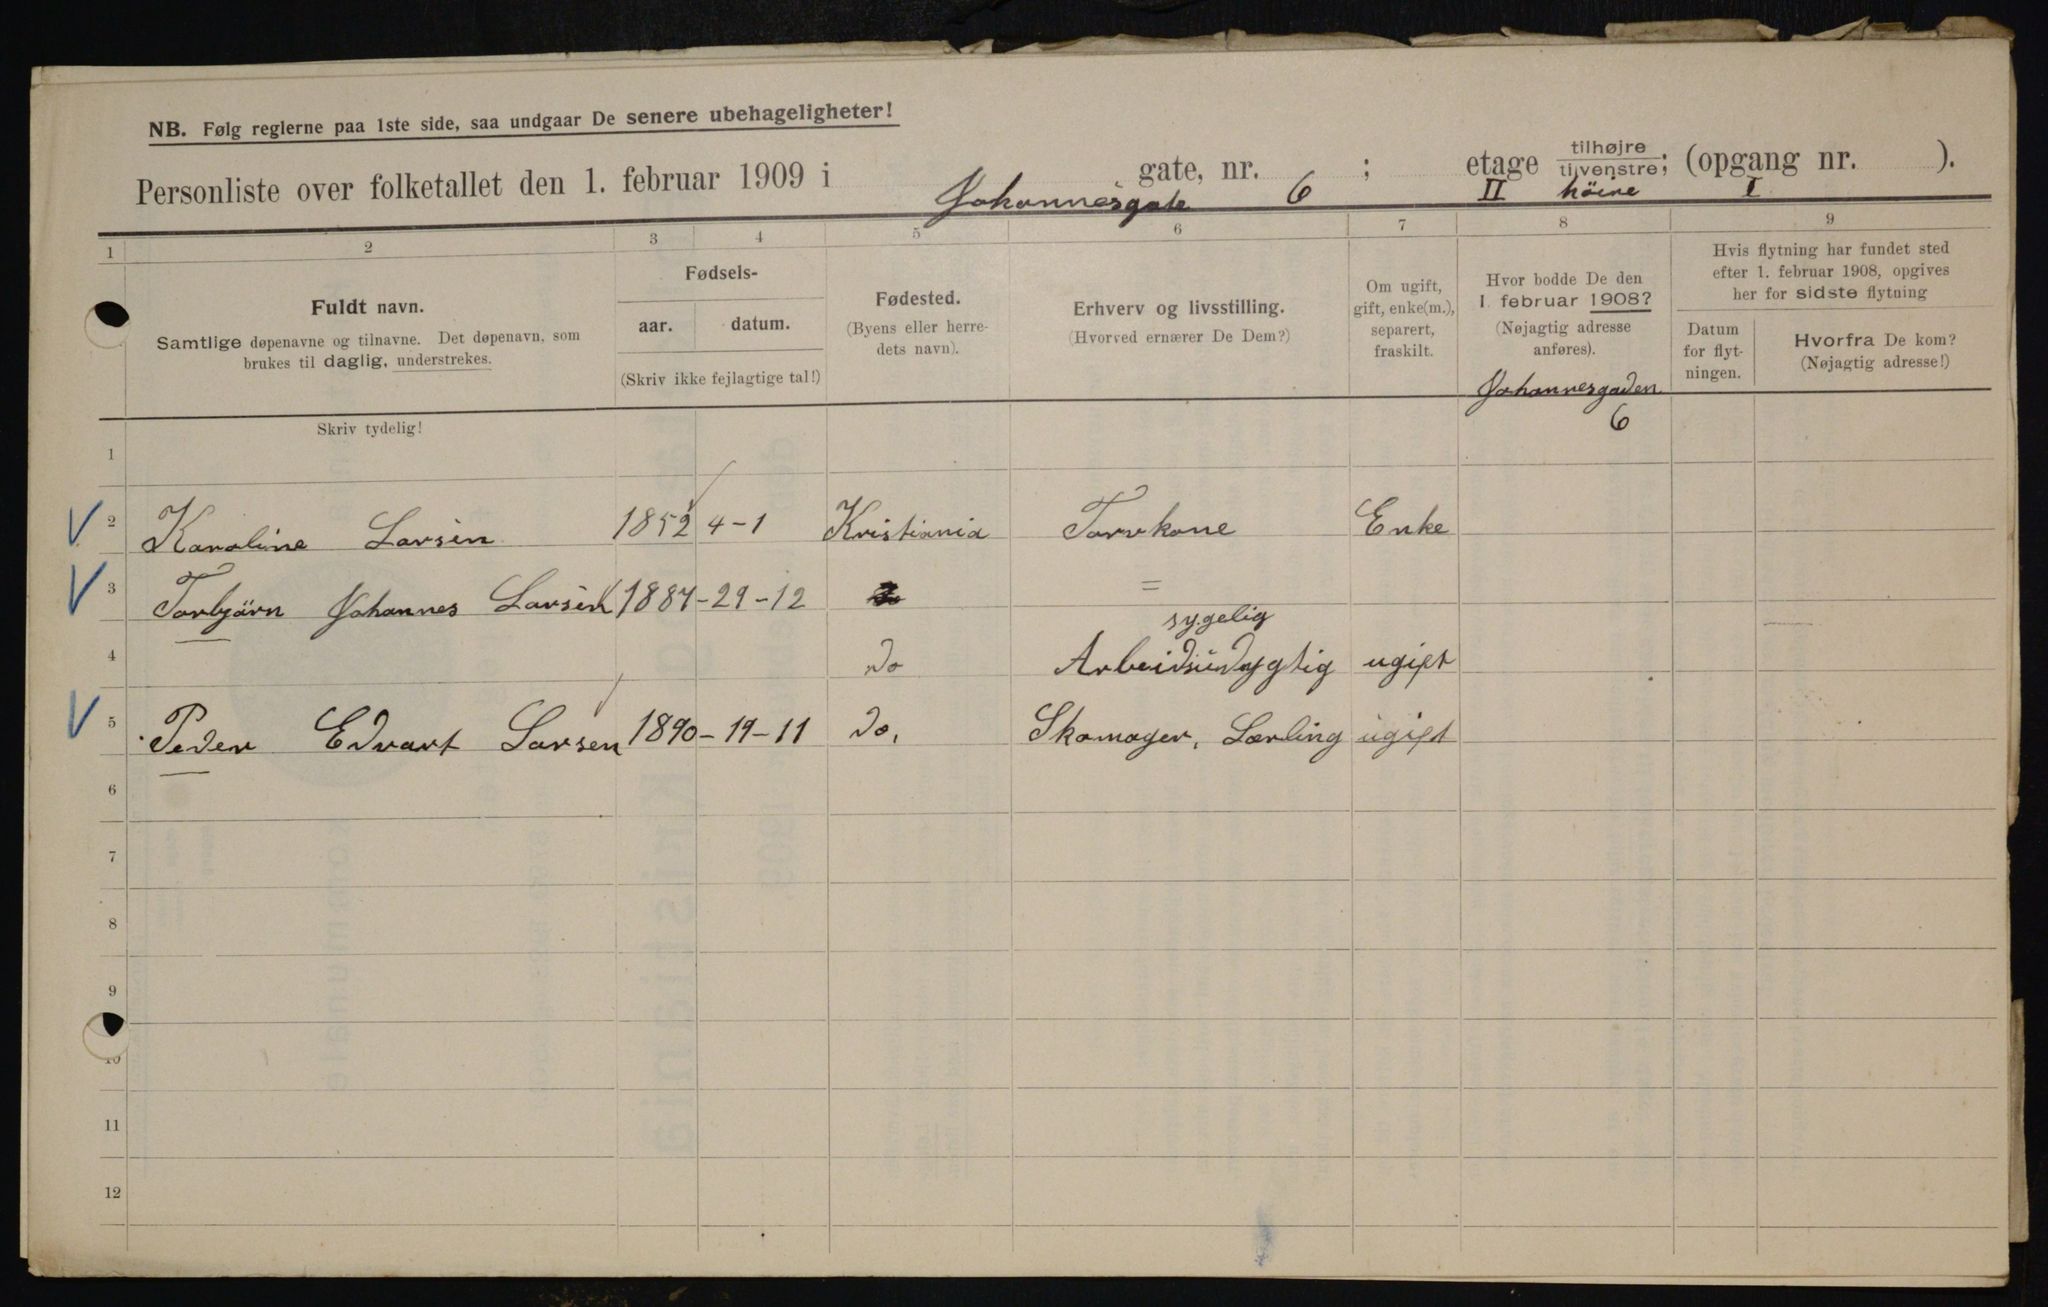 NB. Følg reglerne paa 1ste side, saa undgaar De senere ubehageligheter!
Personliste over folketallet den 1. februar 1909 i Johannesgate gate, nr. 6 ; II etage tilhøjre / tilvenstre høire; (opgang nr. I ).
1 2 3 4 5 6 7 8 9
Fuldt navn.
Samtlige døpenavne og tilnavne. Det døpenavn, som
brukes til daglig, understrekes.
Fødsels-
aar. datum.
(Skriv ikke fejlagtige tal!)
Fødested.
(Byens eller herre-
dets navn).
Erhverv og livsstilling.
(Hvorved ernærer De Dem?)
Om ugift,
gift, enke(m.),
separert,
fraskilt.
Hvor bodde De den
1. februar 1908?
(Nøjagtig adresse
anføres).
Hvis flytning har fundet sted
efter 1. februar 1908, opgives
her for sidste flytning
Datum
for flyt-
ningen.
Hvorfra De kom?
(Nøjagtig adresse!)
Skriv tydelig!
Johannesgaden
6
1
2 Karoline Larsen 1852 4-1 Kristiania Torvkone Enke
3 Torbjörn Johannes Larsen 1887-29-12 =
sygelig
4 do Arbeidsudygtig ugift
5 Peder Edvart Larsen 1890-19-11 do, Skomager, Lærling ugift
6
7
8
9
10
11
12